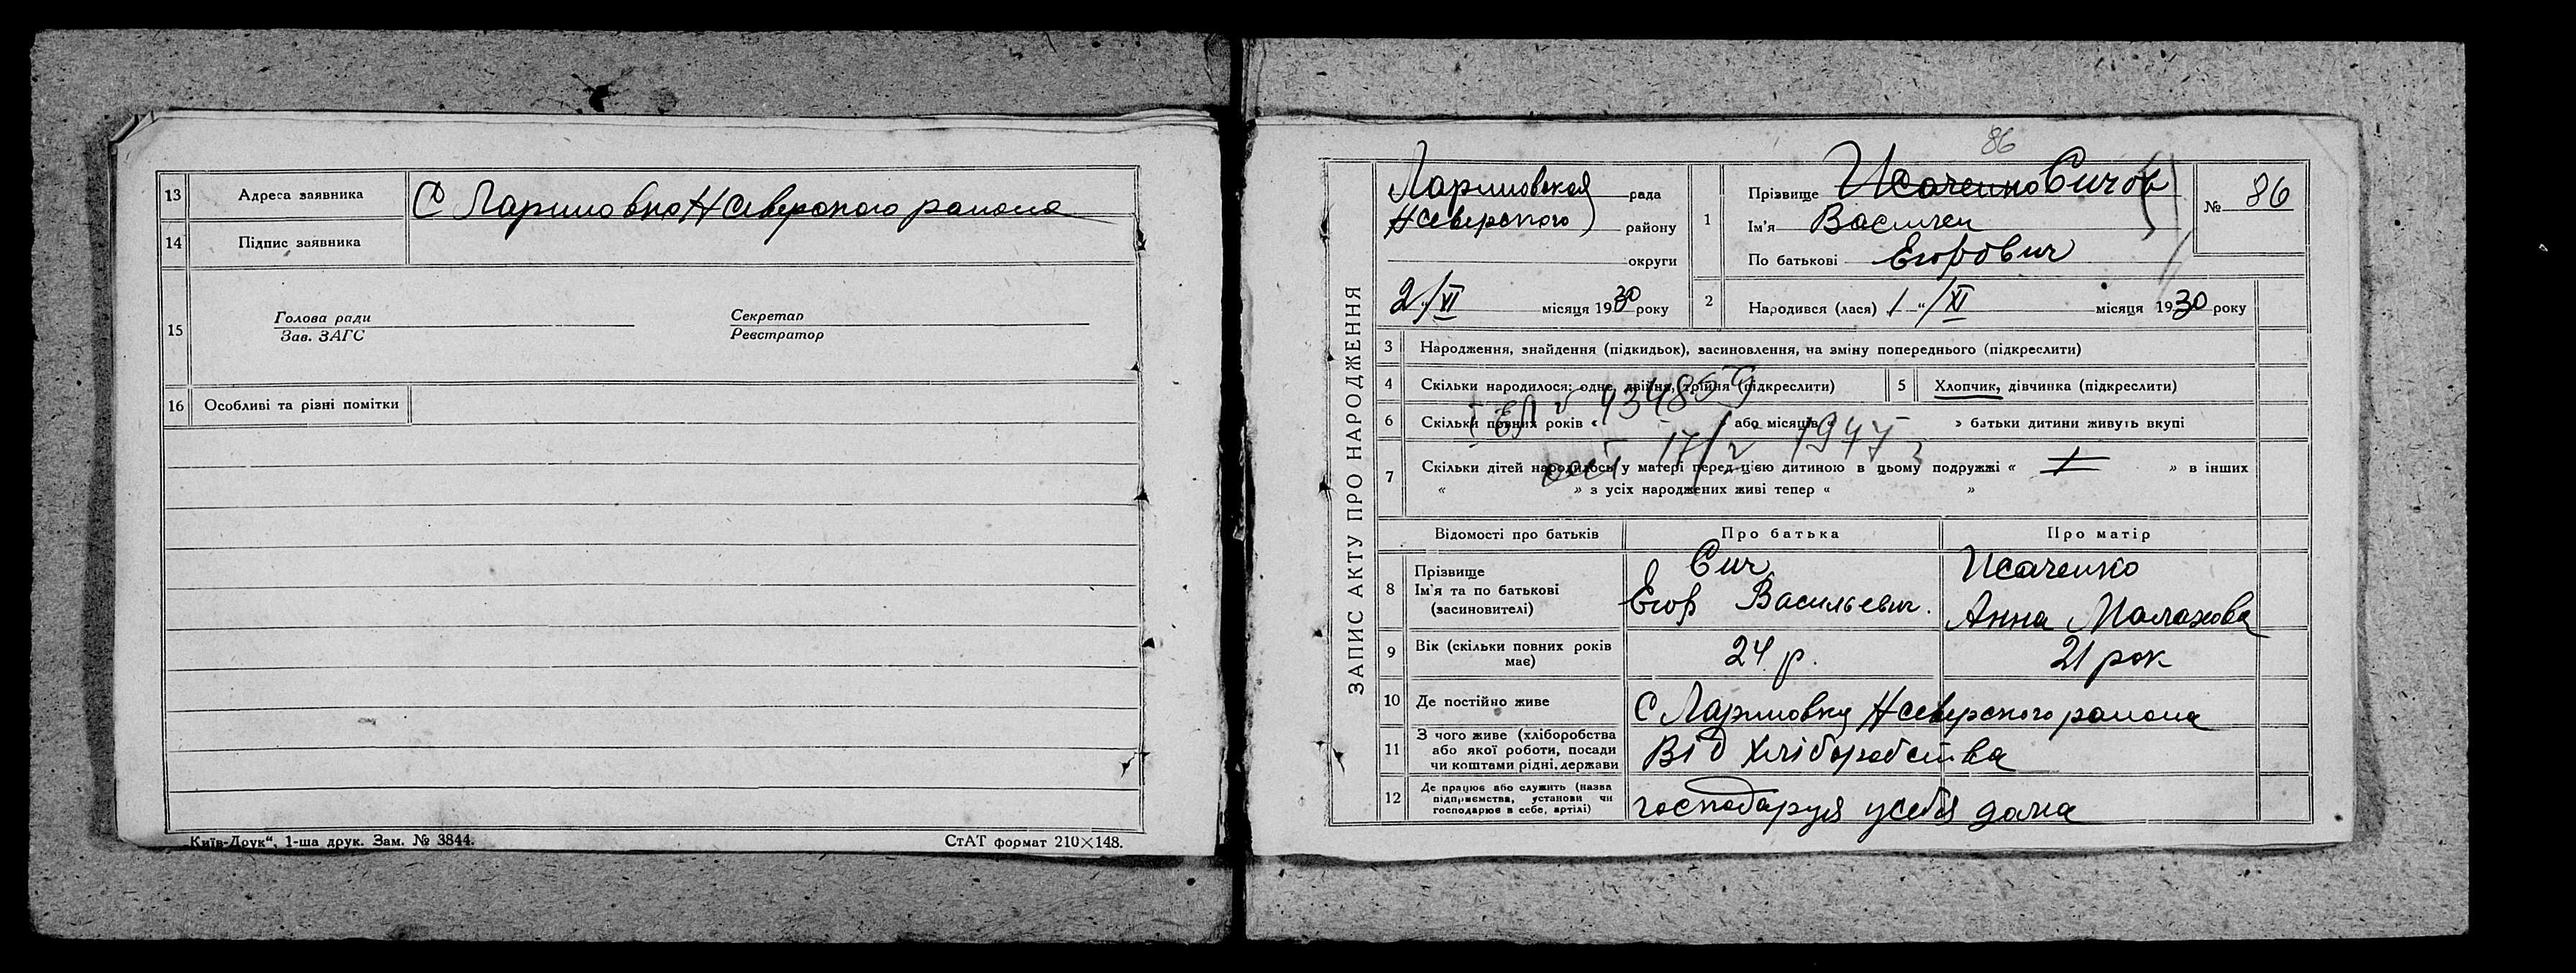 13 Адреса заявника С Лариновко Н Сіверского района
14 Підпис заявника
15 Голова ради Секретар
Зав. ЗАГС Реєстратор
16 Особливі та різні помітки
„Київ-Друк“, 1-ша друк. Зам. № 3844. СтАТ формат 210×148.
86
ЗАПИС АКТУ ПРО НАРОДЖЕННЯ
рада
Н Северского району
округи
2/XI місяця 1930 року
1 Прізвище Исаченко Сичов
Ім'я
По батькові Егорович
№ 86
2 Народився (лася) 1 „/XI місяця 1930 року
3 Народження, знайдення (підкидьок), засиновлення, на зміну попереднього (підкреслити)
4 Скільки народилося: одне, двійня, трійня (підкреслити) 5 Хлопчик, дівчинка (підкреслити)
6 Скільки повних років « або місяців « » батьки дитини живуть вкупі
17/2 1947
7 Скільки дітей народилось у матері перед цією дитиною в цьому подружжі « » в інших
« » з усіх народжених живі тепер « »
Відомості про батьків Про батька Про матір
8 Прізвище Сич Исаченко
Ім'я та по батькові Егор Васильевич. Анна Малахова
(засиновителі)
9 Вік (скільки повних років має) 24 р. 21 рок
10 Де постійно живе С Н Северского района
11 З чого живе (хліборобства або якої роботи, посади чи коштами рідні, держави Від хліборобства
12 Де працює або служить (назва підприємства, установи чи господарює в себе, артілі) господаруя усебя дома